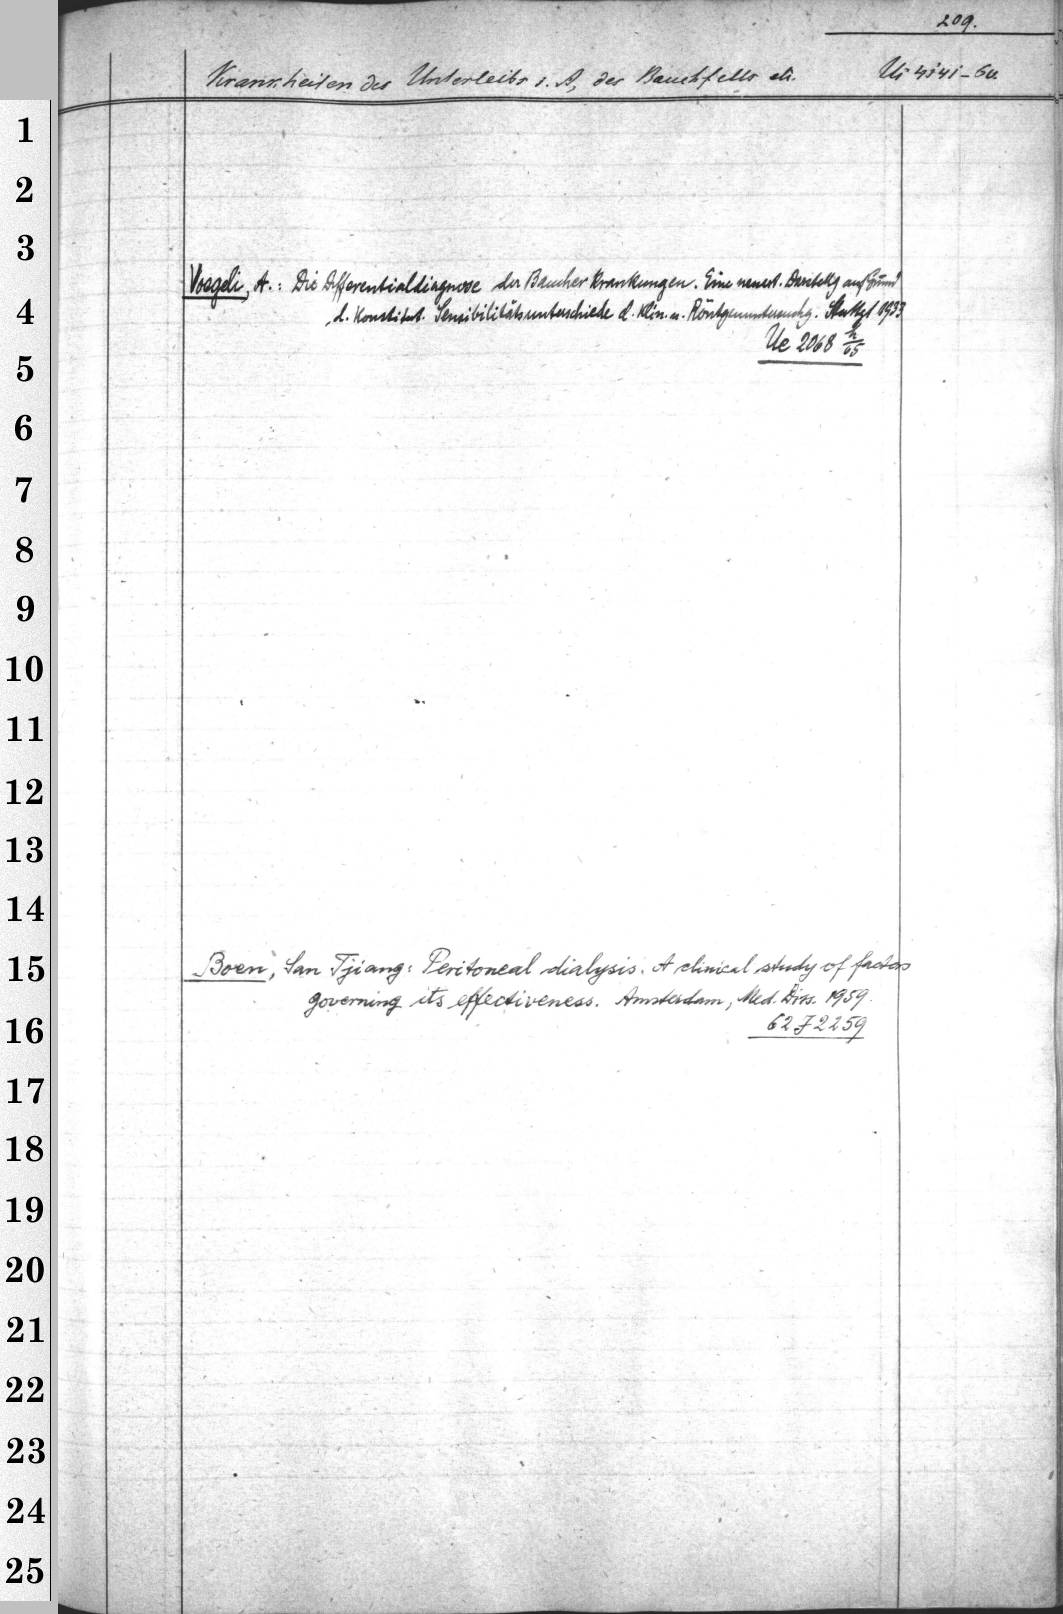 209.
Krankheiten des Unterleibs i. A, des Bauchfells etc.
1
2
3
Voegeli, A.: Die Differentialdiagnose der Baucherkrankungen. Eine neuert. Darstellg auf Grund
4
d. Konstitut. Sensibilitätsunterschiede d. klin. u. Röntgenuntersuchg. Stuttgt 1933
Ue 2068
5
6
7
8
9
10
11
12
13
14
15
Boen, San Tjiang: Peritoneal dialysis. A clinical study of factors
governing its effectiveness. Amsterdam, Med. Diss. 1959.
16
62 F 2259
17
18
19
20
21
22
23
24
25